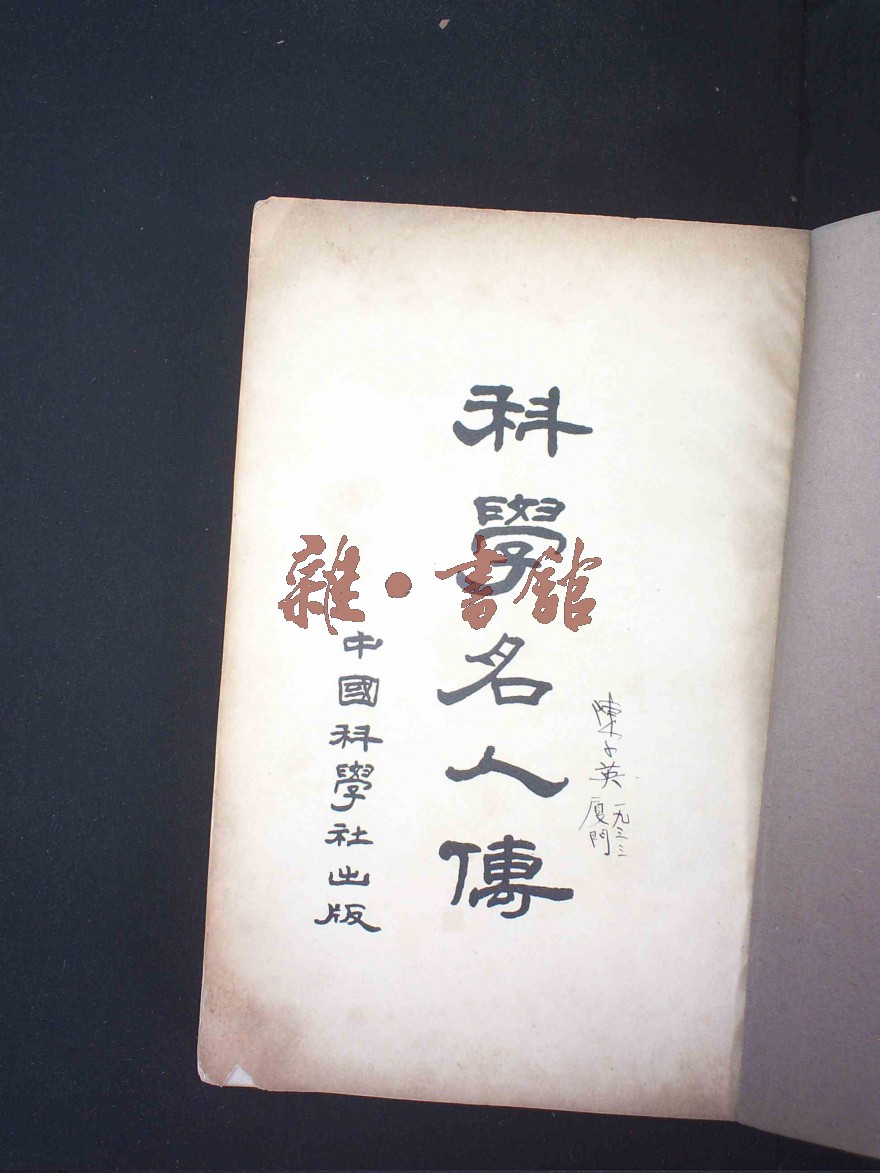 陳子英
一九三三
廈門
科學名人傳
中國科學社出版
雜·書館